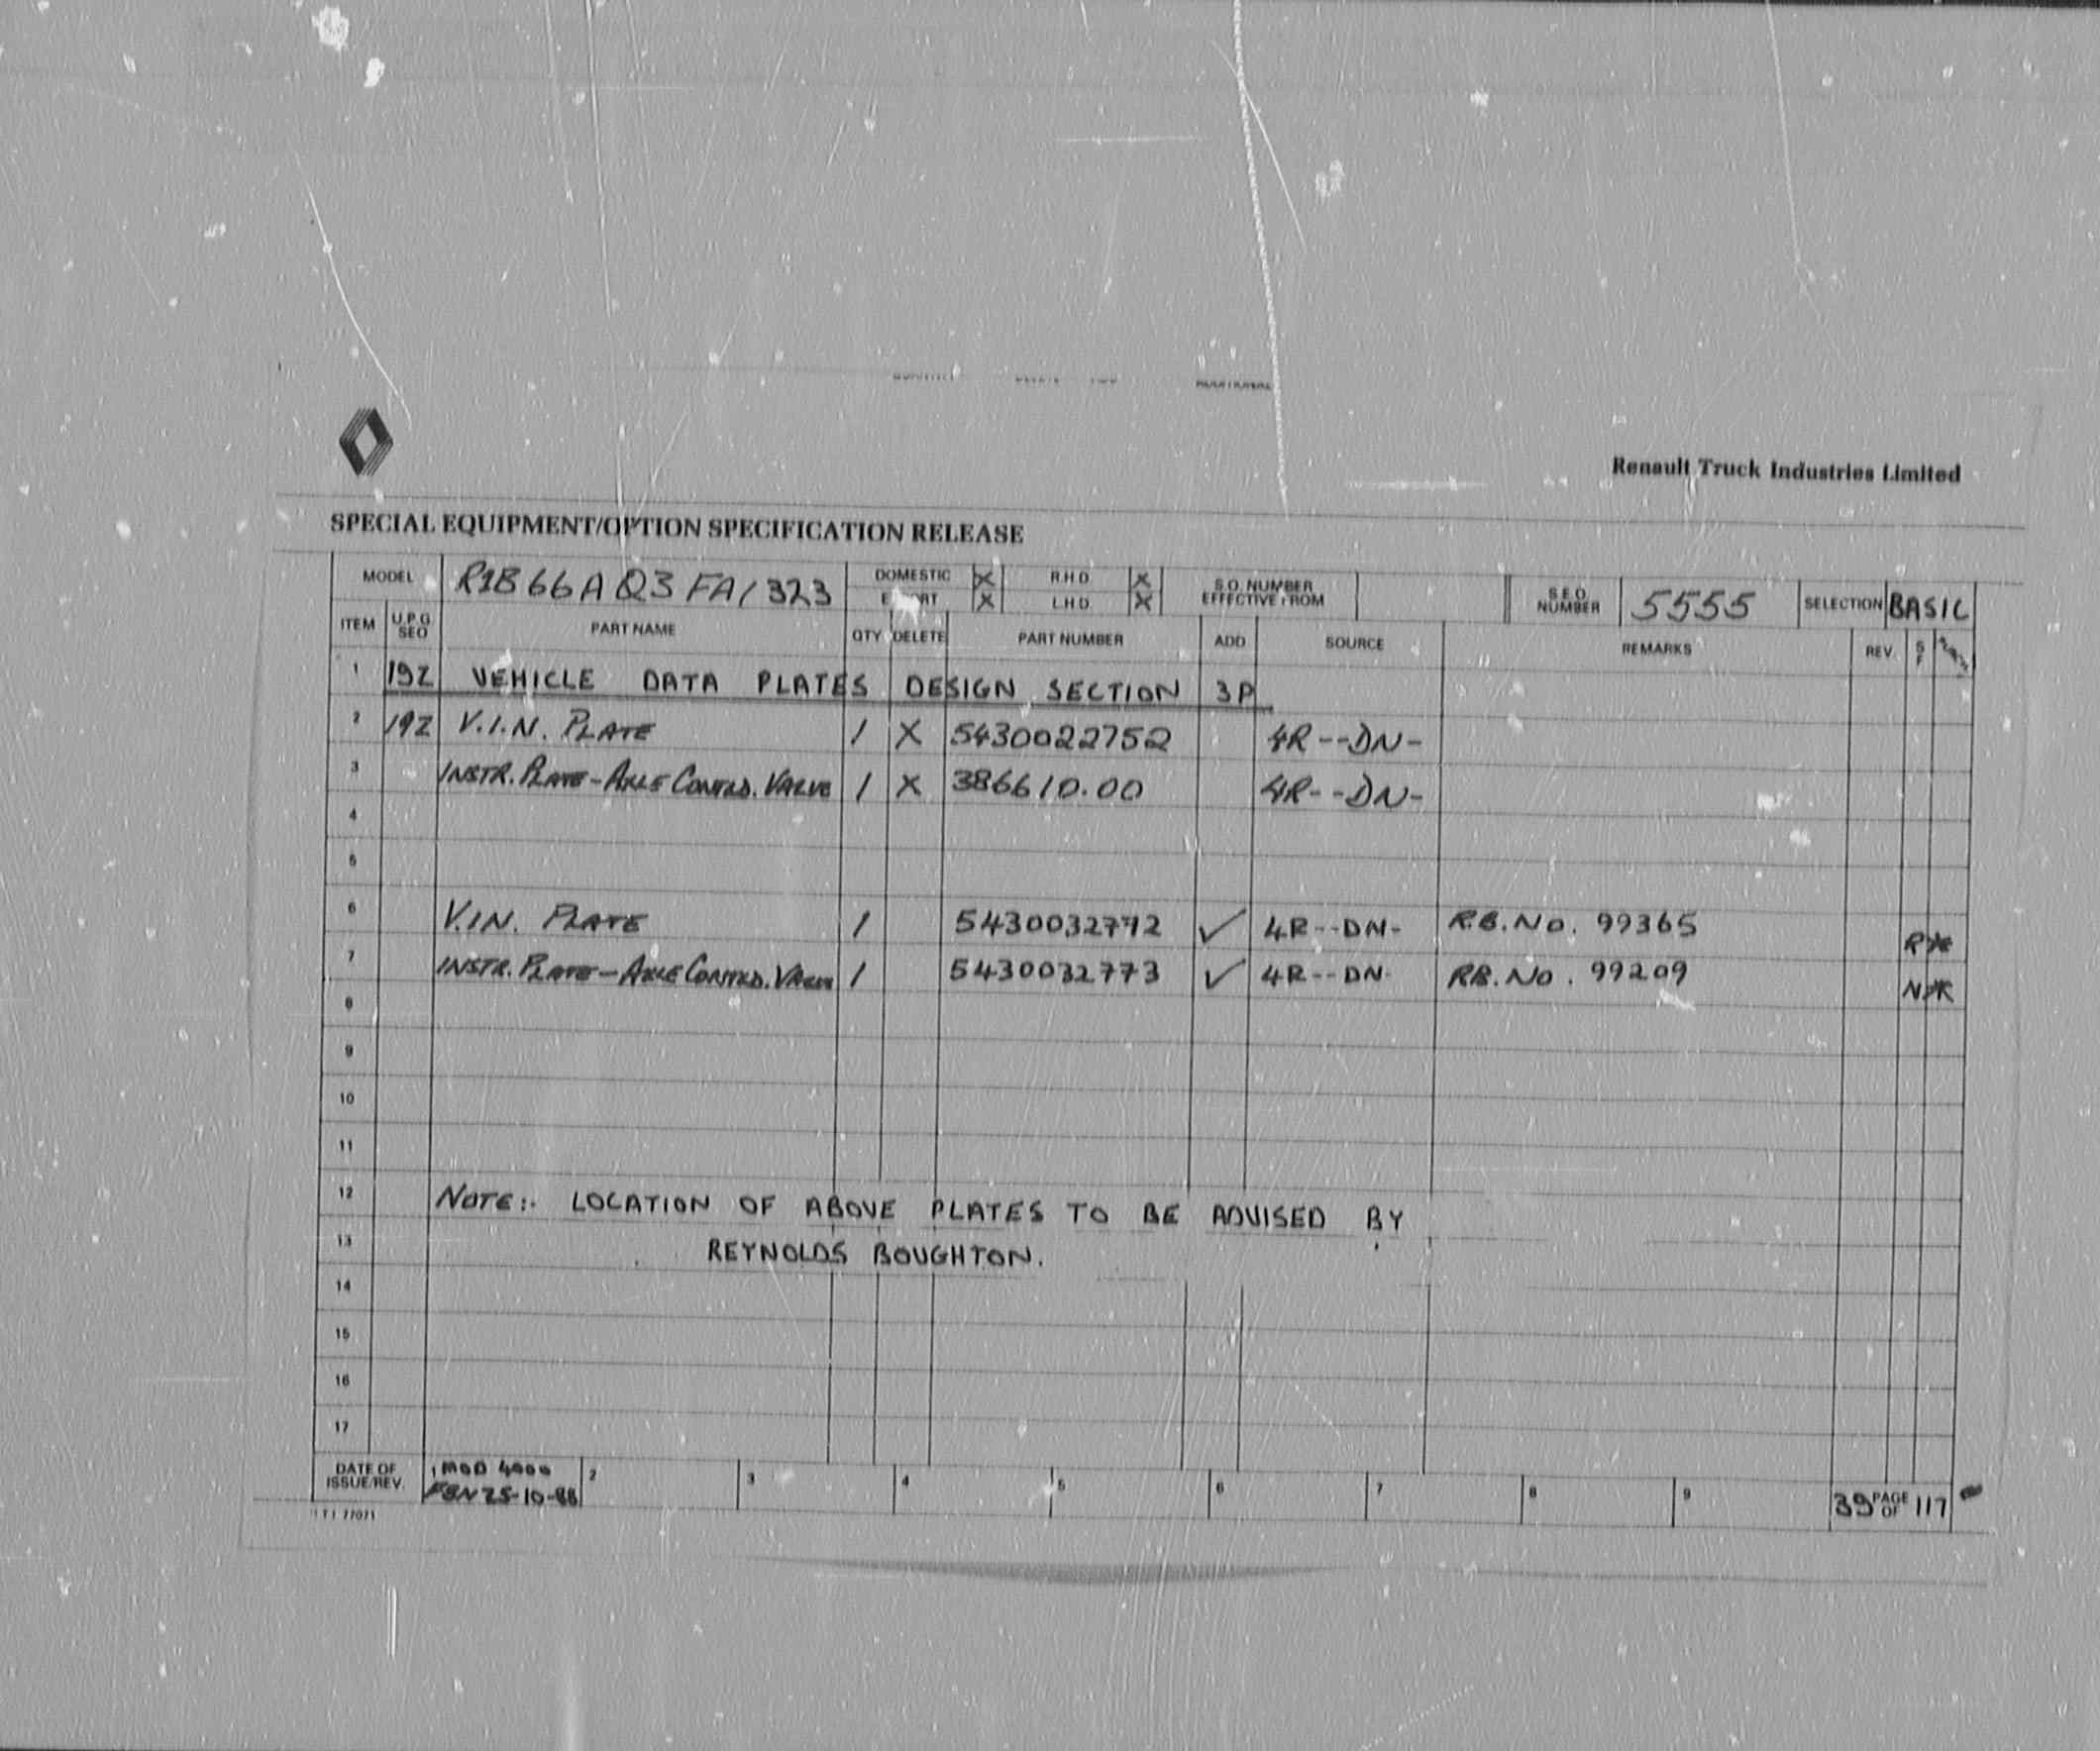 Renault Truck Industries Limited
SPECIAL EQUIPMENT/OPTION SPECIFICATION RELEASE
MODEL R1B66A Q3 FA/323 DOMESTIC X R.H.D. X S.O. NUMBER EFFECTIVE FROM S.E.O. NUMBER 5555 SELECTION BASIC
EXPORT X L.H.D. X
ITEM U.P.G. SEQ PART NAME QTY DELETE PART NUMBER ADD SOURCE REMARKS REV. S F
1 19Z VEHICLE DATA PLATES DESIGN SECTION 3P
2 19Z V.I.N. PLATE 1 X 5430022752 4R--DN-
3 INSTR. PLATE-AXLE CONTRD. VALVE 1 X 386610.00 4R--DN-
4
5
6 V.IN. PLATE 1 5430032772 ✓ 4R--DN- R.B.No. 99365
7 INSTR. PLATE-AXLE CONTRD. VALVE 1 5430032773 ✓ 4R--DN- RB.No. 99209
8
9
10
11
12 NOTE:- LOCATION OF ABOVE PLATES TO BE ADVISED BY
13 REYNOLDS BOUGHTON.
14
15
16
17
DATE OF ISSUE/REV. 1 MOD 4000 2 3 4 5 6 7 8 9 39 PAGE OF 117
25-10-88
77071